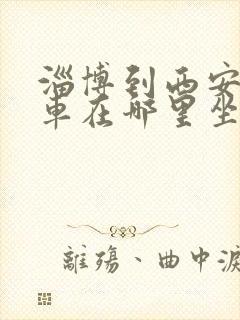 淄博到西安
車在哪里坐
離殤、曲中淚